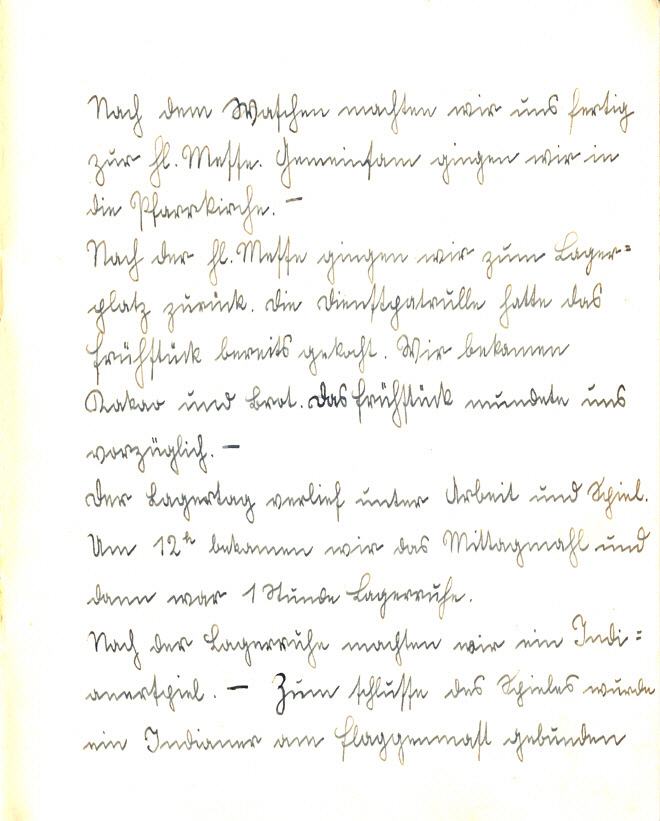 Nach dem Waschen machten wir uns fertig
zur hl. Messe. Gemeinsam gingen wir in
die Pfarrkirche. —
Nach der hl. Messe gingen wir zum Lager=
platz zurück. Die Dienstpatrulle hatte das
Frühstück bereits gekocht. Wir bekamen
Kakao und Brot. Das Frühstück mundete uns
vorzüglich. —
Der Lagertag verlief unter Arbeit und Spiel.
Um 12ʰ bekamen wir das Mittagmahl und
dann war 1 Stunde Lagerruhe.
Nach der Lagerruhe machten wir ein Indi=
anerspiel. — Zum schlusse des Spieles wurde
ein Indianer am Flaggenmast gebunden